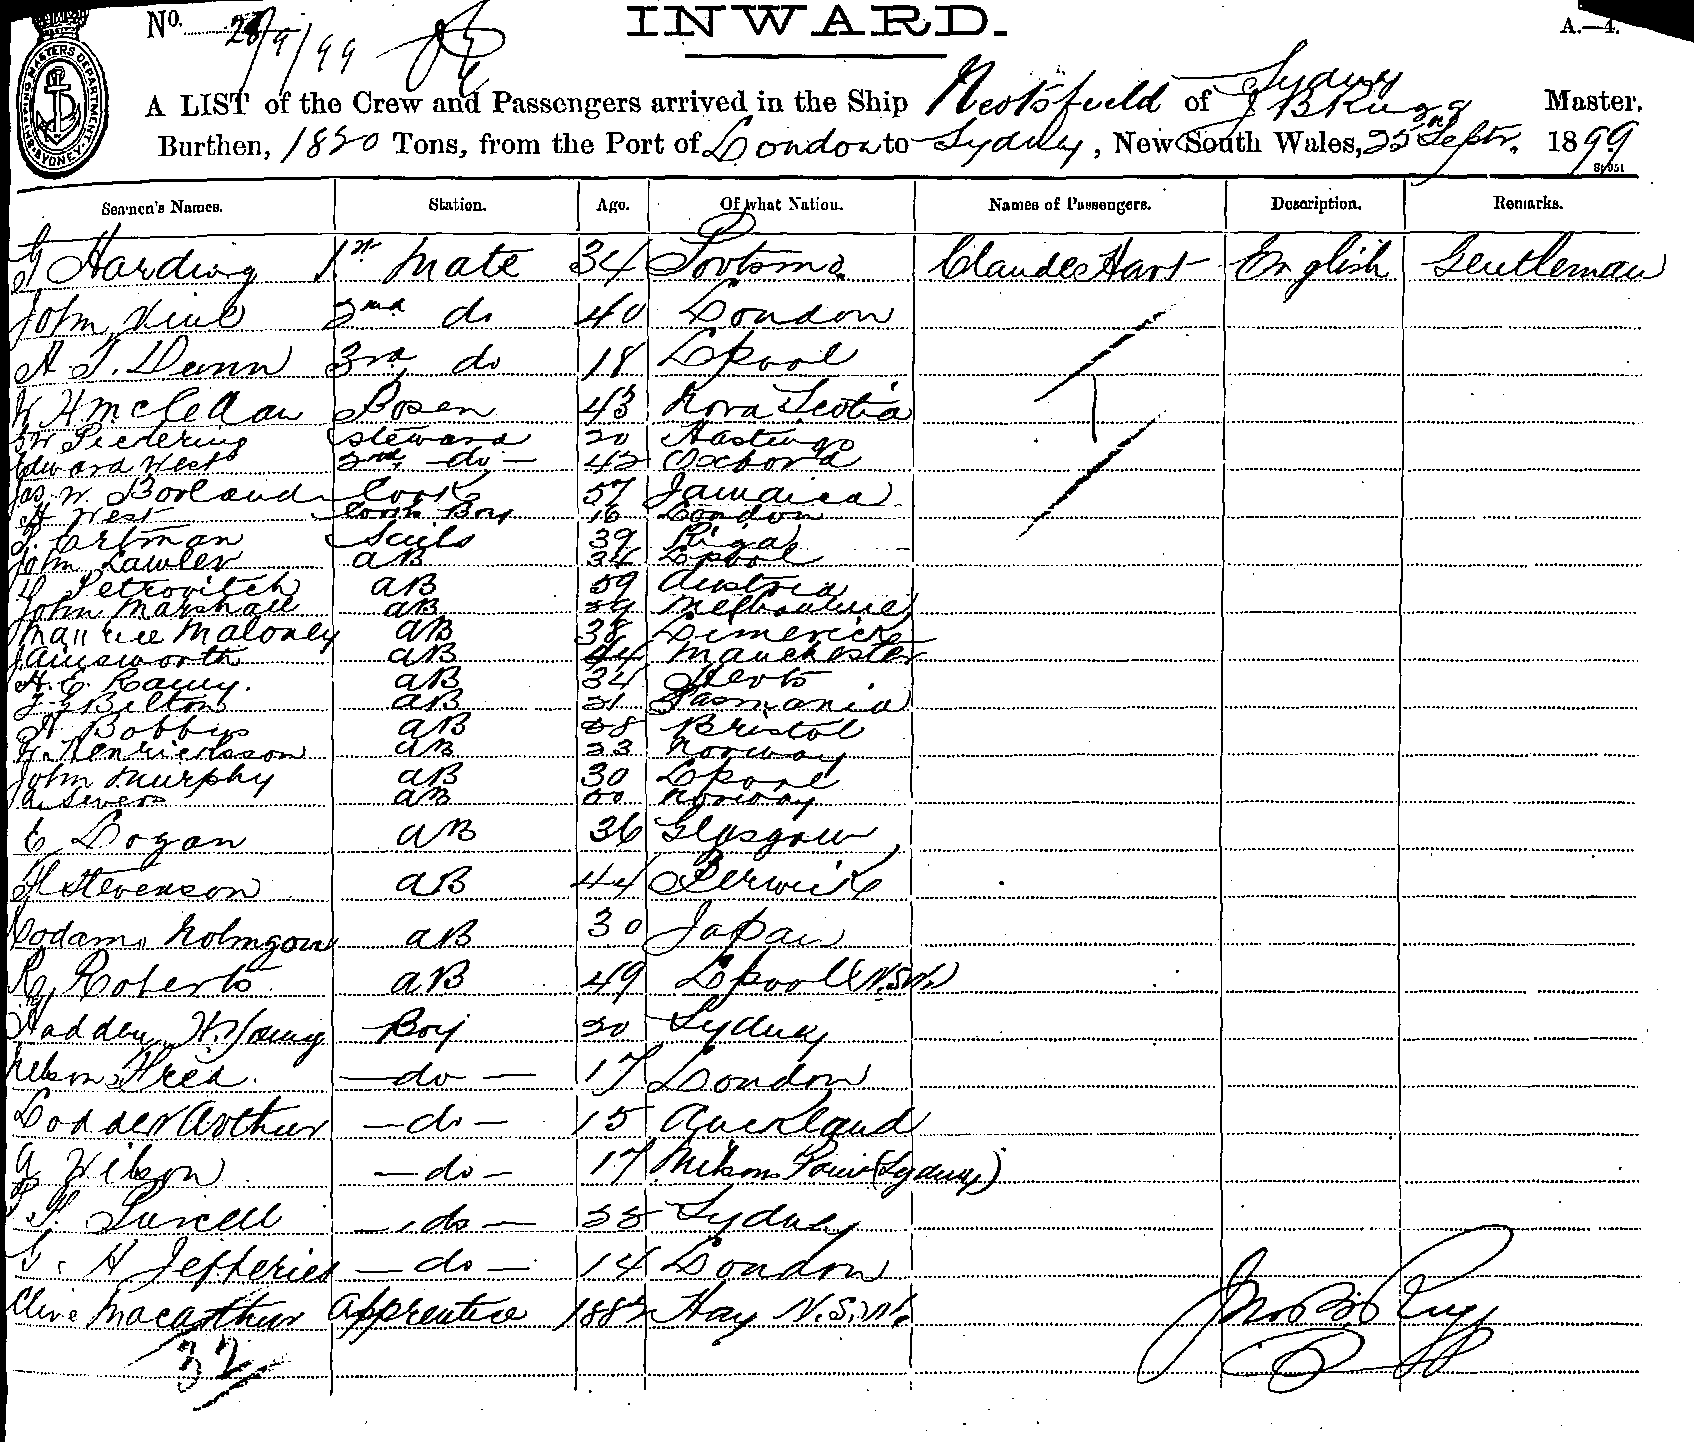 No. 28/9/99
INWARD.
A.—4.
SHIPPING MASTERS DEPARTMENT SYDNEY
A LIST of the Crew and Passengers arrived in the Ship Neotsfield of Sydney J B Rugg Master,
Burthen, 1820 Tons, from the Port of London to Sydney, New South Wales, 25 Septr. 1899
Seamen's Names. Station. Age. Of what Nation. Names of Passengers. Description. Remarks.
G Harding 1st Mate 34 Portsmo Claude Hart English Gentleman
John Vine 2nd do 40 London
A. T. Dunn 3rd do 18 Lpool
W H McLellan Bosen 43 Nova Scotia
Pickering Steward 20 Hastings
Edward West 2nd -do- 42 Oxford
Jas. W. Borland Cook 57 Jamaica
A West Cooks Boy 16 London
Ortman Sails 39 Riga
John Lawler AB 34 Lpool
Petrovitch AB 59 Austria
John Marshall AB 39 Melbourne
Maurice Maloney AB 38 Limerick
J Ainsworth AB 44 Manchester
H. E. AB 34
Bilton AB 21 Tasmania
AB Bristol
Henrickson AB 23 Norway
John Murphy AB 30 Lpool
AB Norway
E Logan AB 36 Glasgow
H Stevenson AB 44 Berwick
AB 30 Japan
R Roberts AB 49 Lpool (N.S.W.)
Hadden H. Young Boy 20 Sydney
Nelson Fred. -do- 17 London
Lodder Arthur -do- 15 Auckland
G Wilson -do- 17 Milsons Point (Sydney)
Purcell -do- 22 Sydney
G. H Jefferies -do- 14 London
Clive Macarthur Apprentice 1882 Hay N.S.W.
32
Jno B Rugg